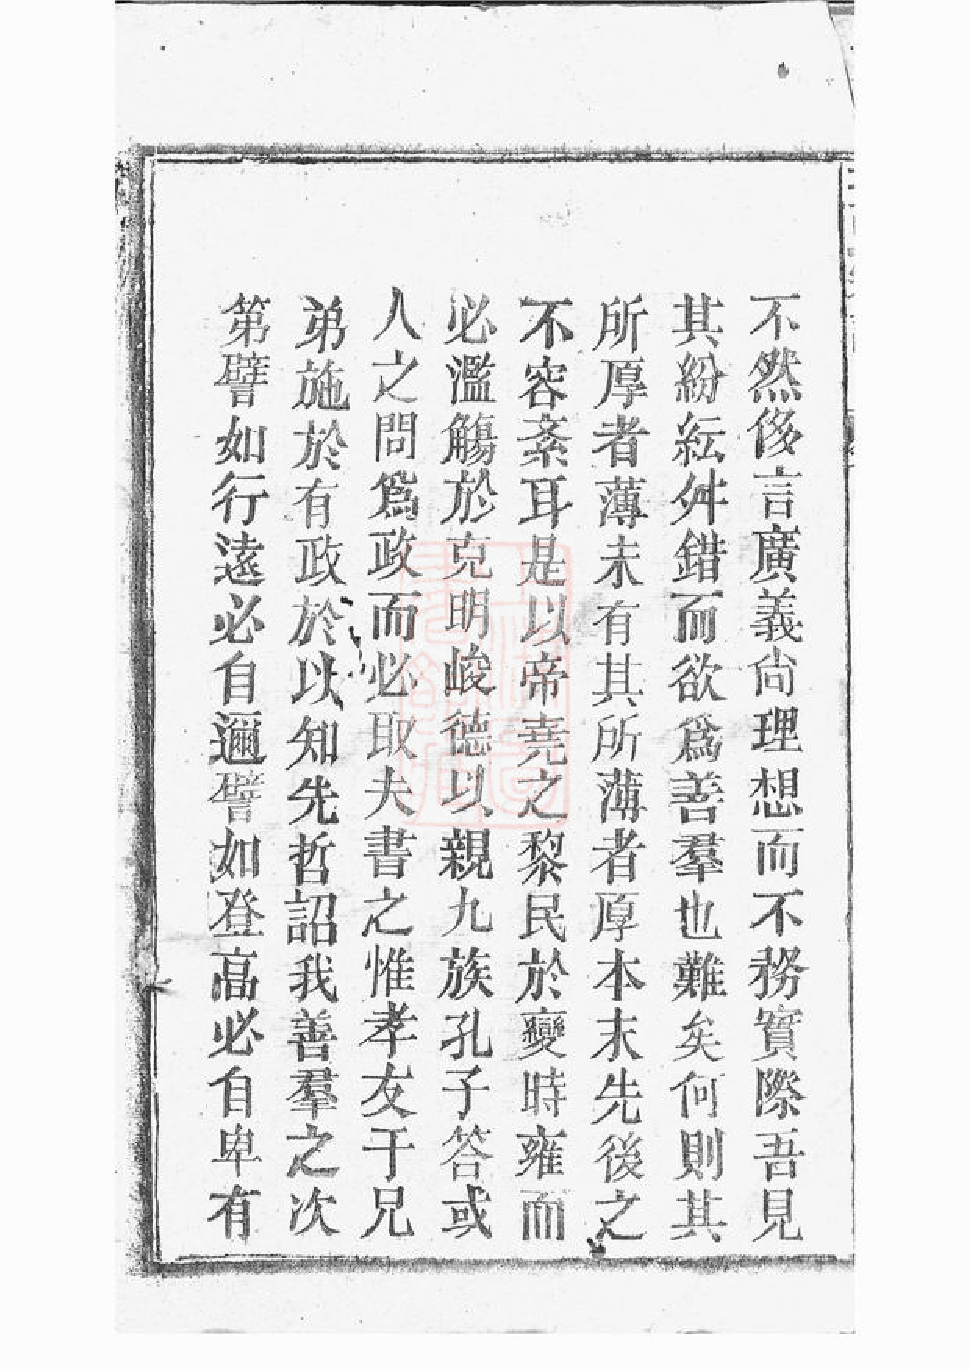 不然侈言廣義尙理想而不務實際吾見
其紛紜舛錯而欲爲善羣也難矣何則其
所厚者薄未有其所薄者厚本末先後之
不容紊耳是以帝堯之黎民於變時雍而
必濫觴於克明峻德以親九族孔子答或
人之問爲政而必取夫書之惟孝友于兄
弟施於有政於以知先哲詔我善羣之次
第譬如行遠必自邇譬如登高必自卑有